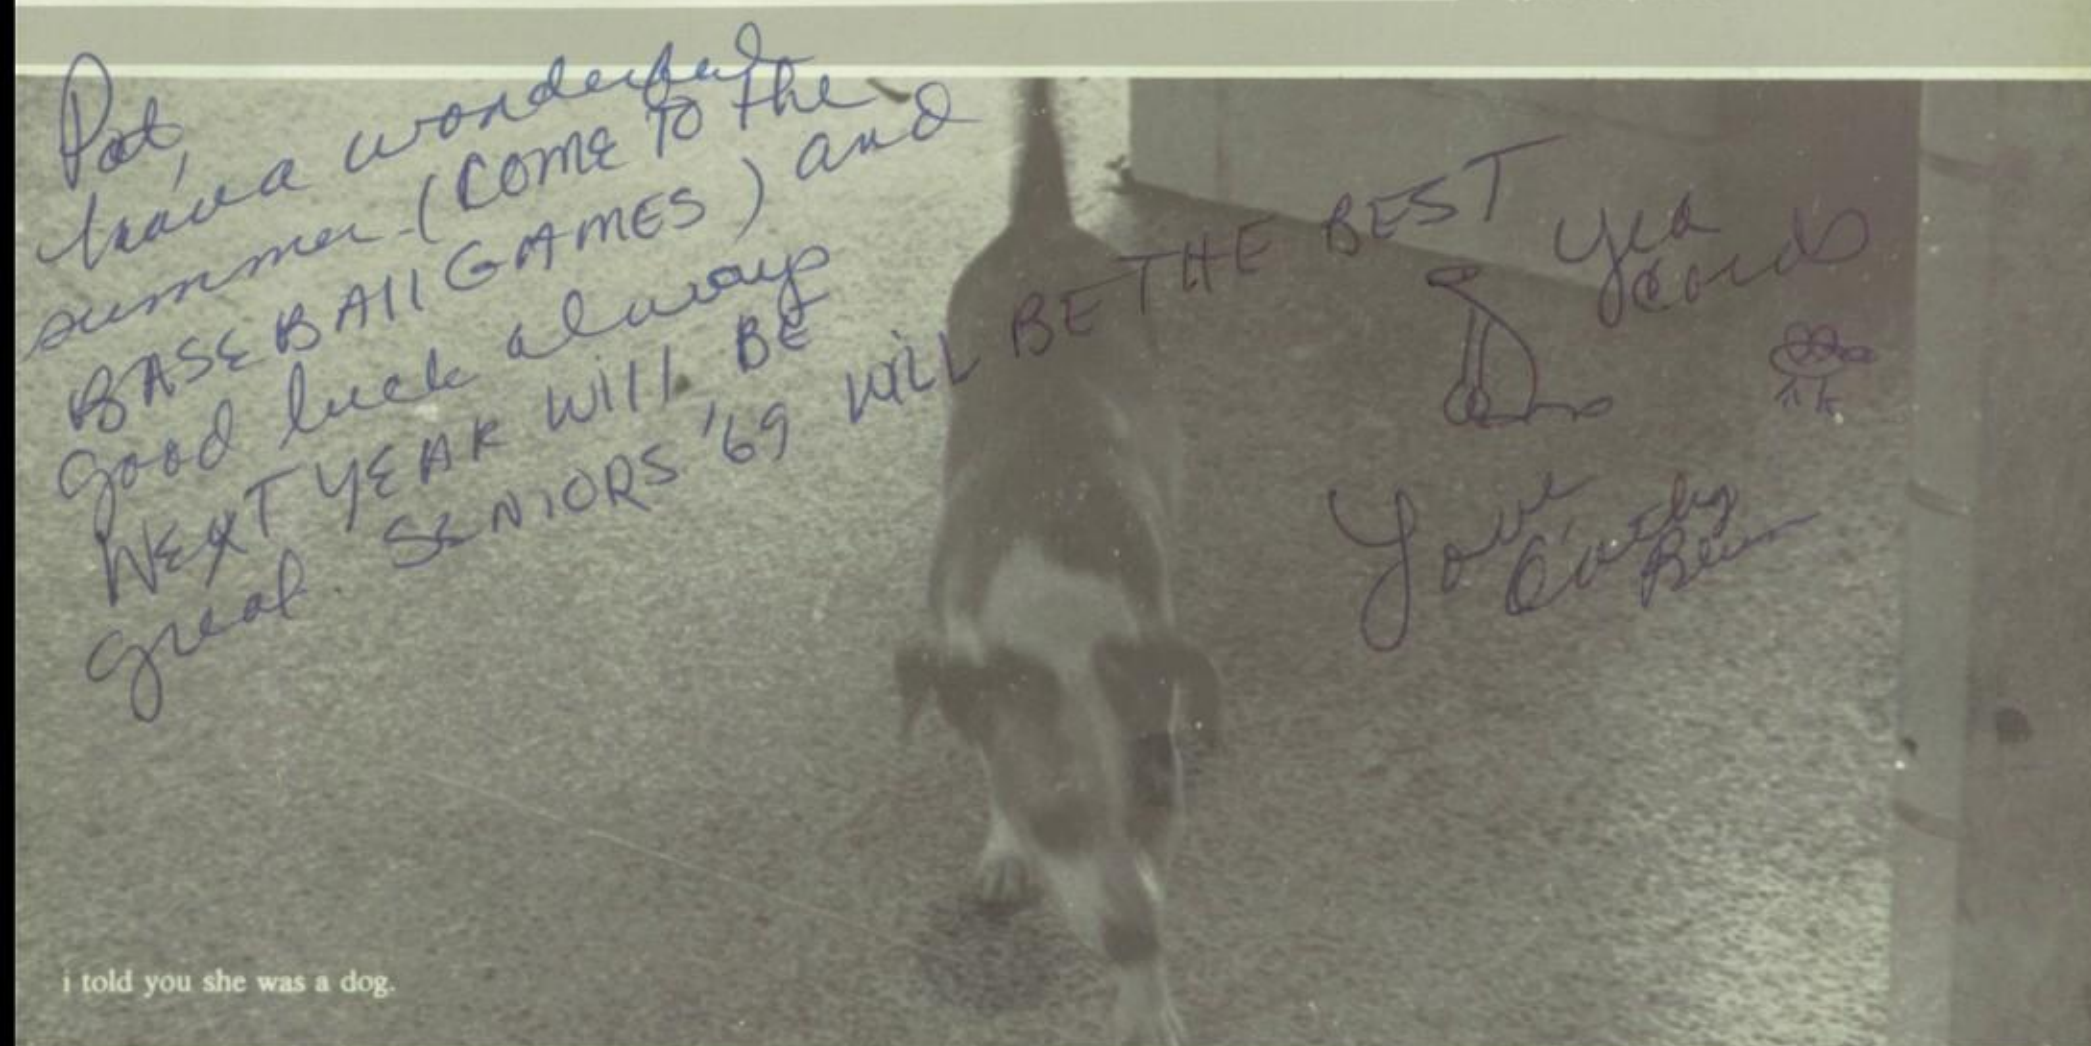 Pat,
have a wonderful
summer (COME TO the
BASEBAll GAMES) and
good luck always
NEXT YEAR WIll BE
great. SENIORS '69 WILL BE THE BEST
Yea
Cards
Love
Cathy
i told you she was a dog.